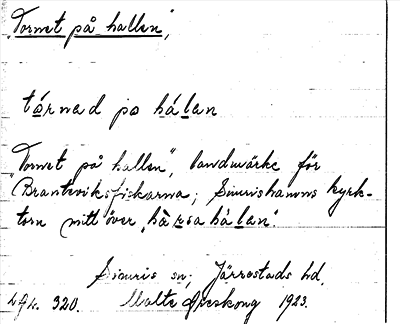 "Tornet på hallen",
tórnad po hálan
"Tornet på hallen", landmärke för
Branteviksfiskarna; Simrishamns kyrk-
torn mitt över "hàrsahálan".
Simris sn; Järrestads hd.
320. Malte 1923.